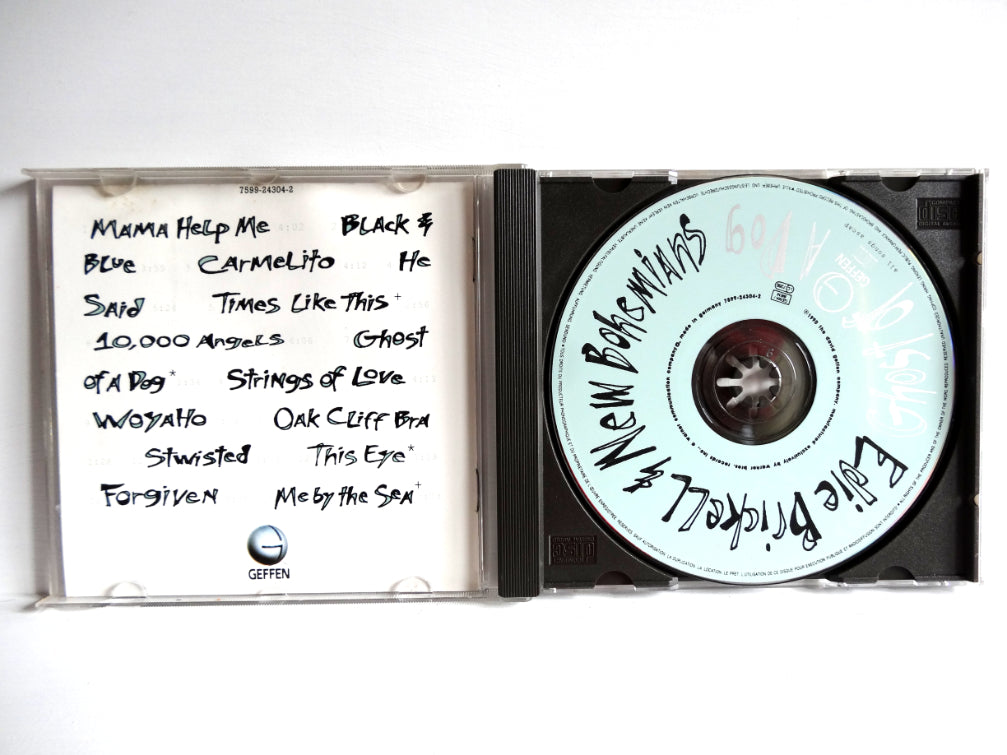 7599-24304-2
Mama Help Me Black &
Blue Carmelito He
Said Times Like This+
10,000 Angels Ghost
of A Dog* Strings of Love
Woyaho Oak Cliff Bra
Stwisted This Eye*
Forgiven Me by the Sea+
GEFFEN
Edie Brickell & New Bohemians
Ghost of
A Dog
GEFFEN
all songs ascap
℗1990 the david geffen company. manufactured exclusively by warner bros. records inc., a warner communication company. made in germany 7599-24304-2
COMPACT
disc
DIGITAL AUDIO
disc